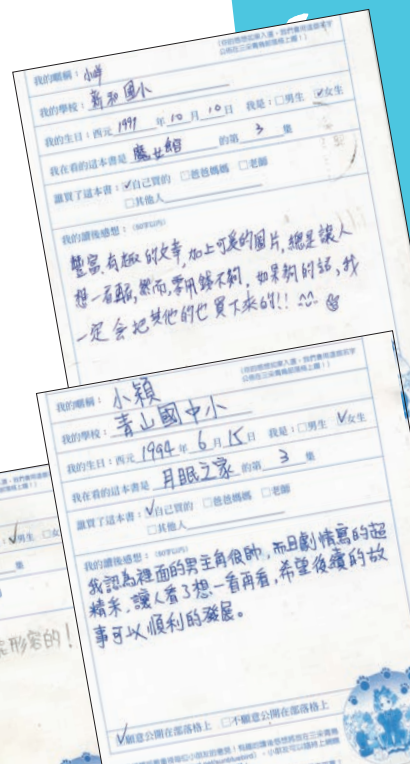 我的暱稱：小
我的學校：新和國小
我的生日：西元 1997 年 10 月 10 日 我是：□男生 ☑女生
我在看的這本書是 魔女館 的第 3 集
誰買了這本書：☑自己買的 □爸爸媽媽 □老師
□其他人
我的讀後感想：（50字以內）
豐富，有趣的文章，加上可愛的圖片，總是讓人
想一看再看，然而，零用錢不夠，如果夠的話，我
一定會把其他的也買下來的!! ^^
我的暱稱：小穎
我的學校：青山國中小
我的生日：西元 1994 年 6 月 15 日 我是：□男生 ☑女生
我在看的這本書是 月眠之家 的第 3 集
誰買了這本書：☑自己買的 □爸爸媽媽 □老師
□其他人
我的讀後感想：（50字以內）
我認為裡面的男主角很帥，而且劇情寫的超
精采，讓人看了想一看再看，希望後續的故
事可以順利的發展。
☑願意公開在部落格上 □不願意公開在部落格上
☑男生 □女
集
形容的！